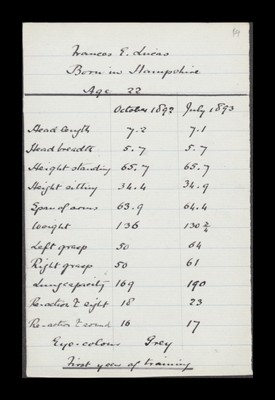 Frances E. Lucas
Born in Hampshire
Age 22
October 1892 July 1893
Head length 7.2 7.1
Head breadth 5.7 5.7
Height standing 65.7 65.7
Height sitting 34.4 34.9
Span of arms 63.9 64.4
Weight 136 130 2/4
Left grasp 50 64
Right grasp 50 61
Lung capacity 169 190
Re-action T. sight 18 23
Re-action T. sound 16 17
Eye-colour Grey
First year of training